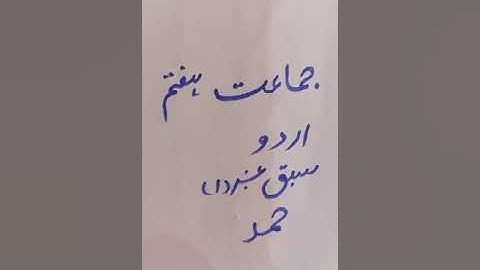 جماعت ہفتم
اردو
سبق نمبر (۱)
حمد